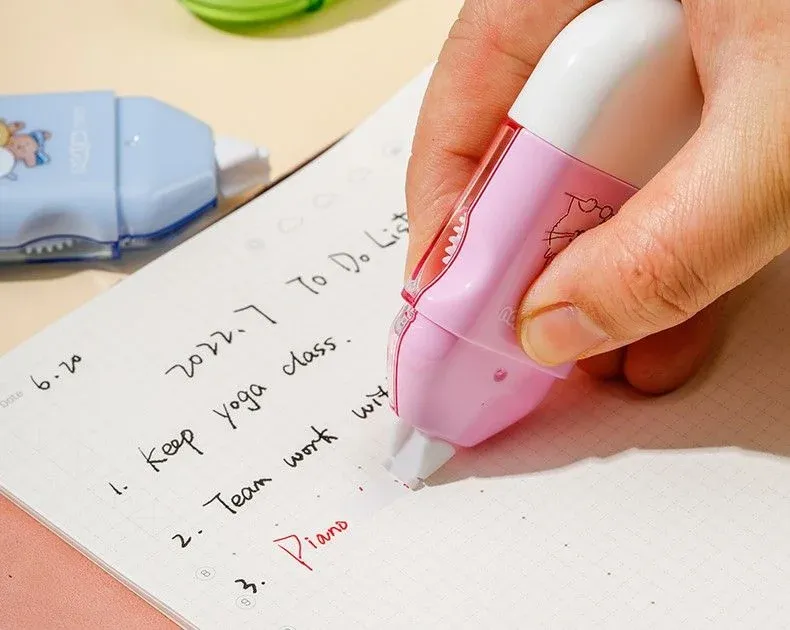 Date 6.20
2022.7 To Do List
1. Keep yoga class.
2. Team work wit
3. Piano
8
9